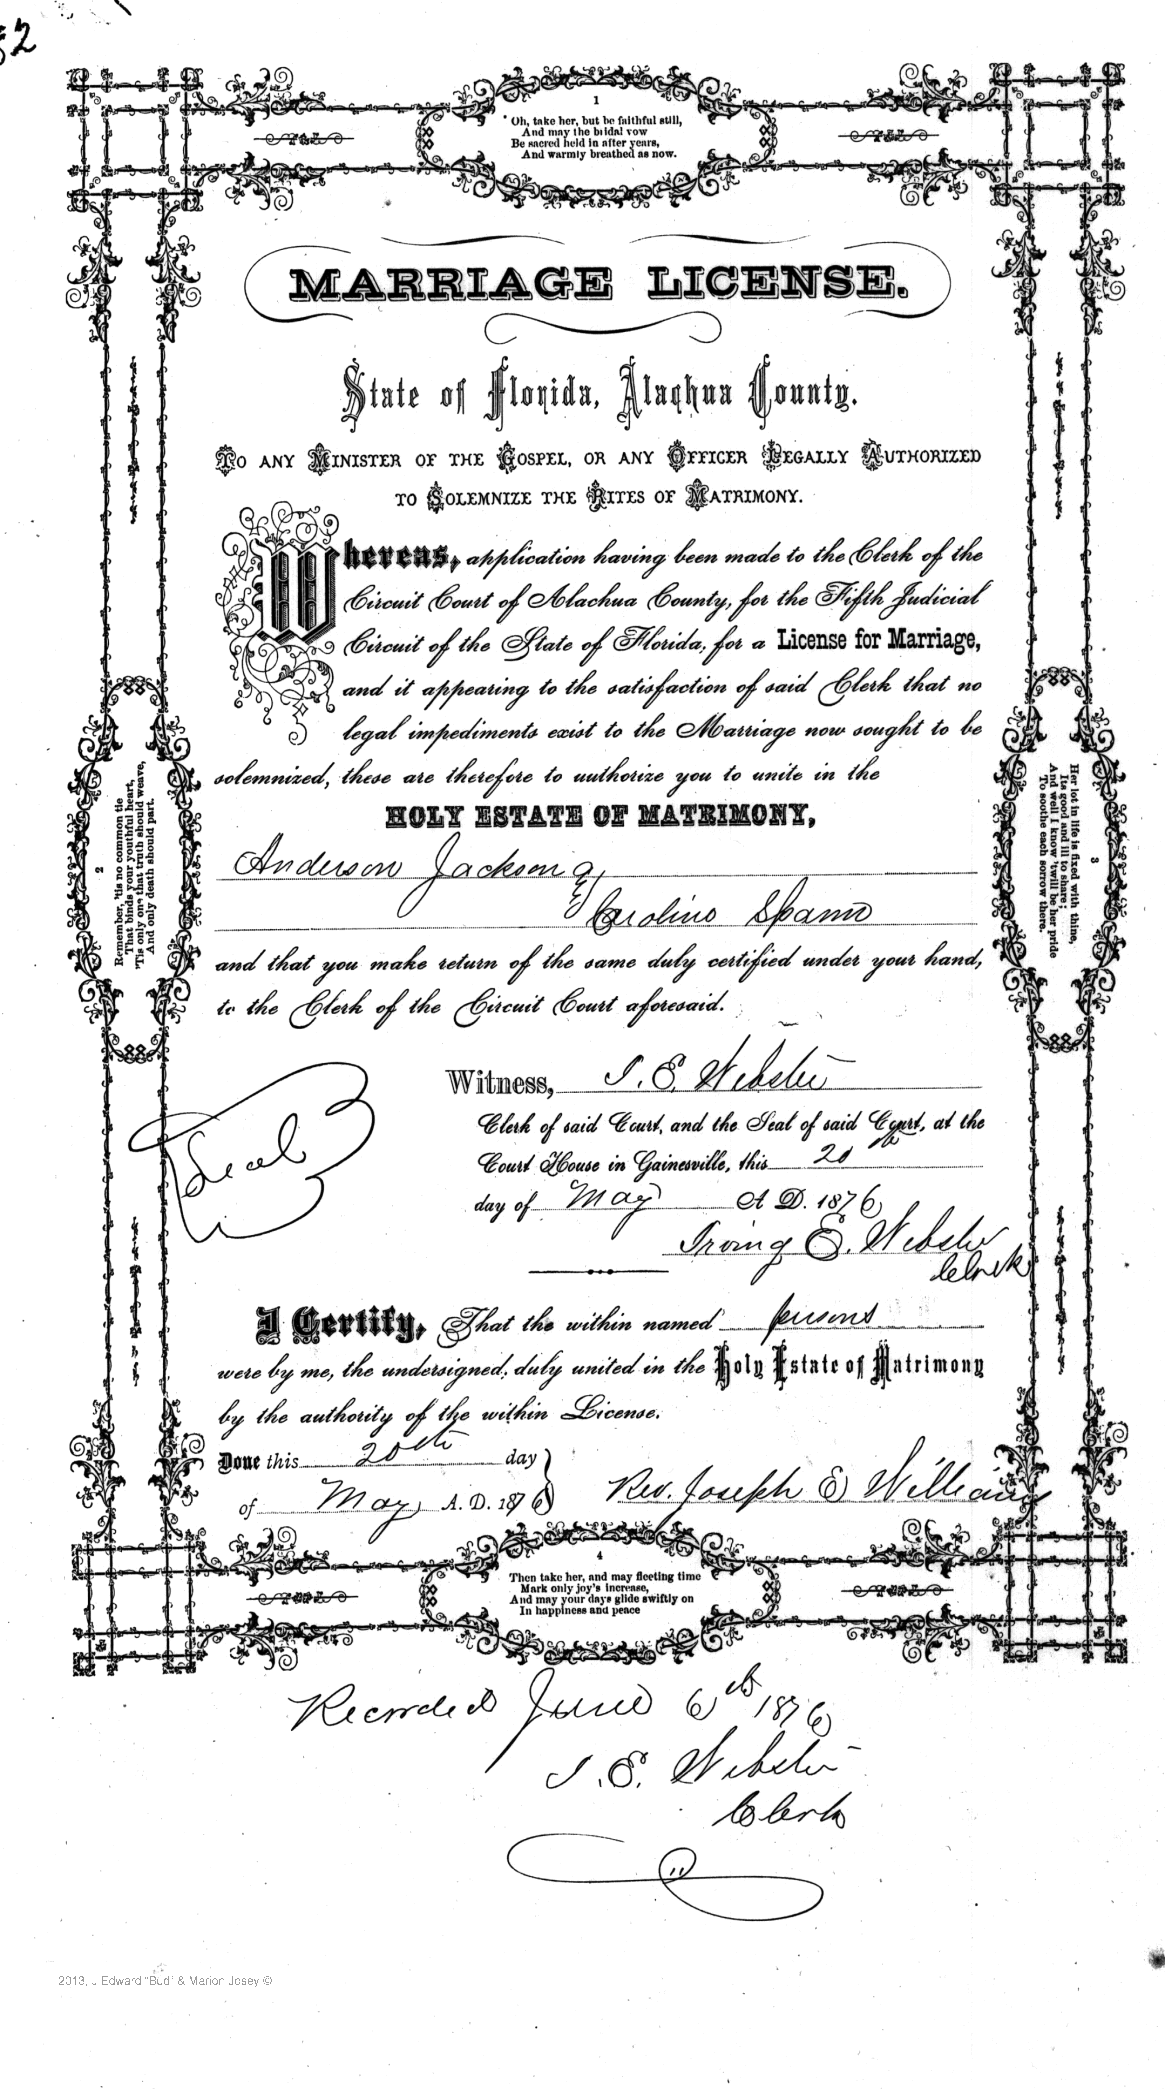 52
1
"Oh, take her, but be faithful still,
And may the bridal vow
Be sacred held in after years,
And warmly breathed as now.
MARRIAGE LICENSE.
State of Florida, Alachua County.
To any Minister of the Gospel, or any Officer Legally Authorized
to Solemnize the Rites of Matrimony.
Whereas, application having been made to the Clerk of the
Circuit Court of Alachua County, for the Fifth Judicial
Circuit of the State of Florida, for a License for Marriage,
and it appearing to the satisfaction of said Clerk that no
legal impediments exist to the Marriage now sought to be
solemnized, these are therefore to authorize you to unite in the
HOLY ESTATE OF MATRIMONY,
Anderson Jackson &
Caroline Spann
and that you make return of the same duly certified under your hand,
to the Clerk of the Circuit Court aforesaid.
2
Remember, 'tis no common tie
That binds your youthful heart,
'Tis only one that truth should weave,
And only death should part.
3
Her lot in life is fixed with thine,
Its good and ill to share;
And well I know 'twill be her pride
To soothe each sorrow there.
Seal
Witness, I. E. Webster
Clerk of said Court, and the Seal of said Court, at the
Court House in Gainesville, this 20th
day of May A. D. 1876
Irving E. Webster
Clerk
I Certify, That the within named persons
were by me, the undersigned, duly united in the Holy Estate of Matrimony
by the authority of the within License.
Done this 20th day
of May A. D. 1876 Rev. Joseph E Williams
4
Then take her, and may fleeting time
Mark only joy's increase,
And may your days glide swiftly on
In happiness and peace
Recorded June 6th 1876
I. E. Webster
Clerk
2013, J Edward "Bud" & Marion Josey ©